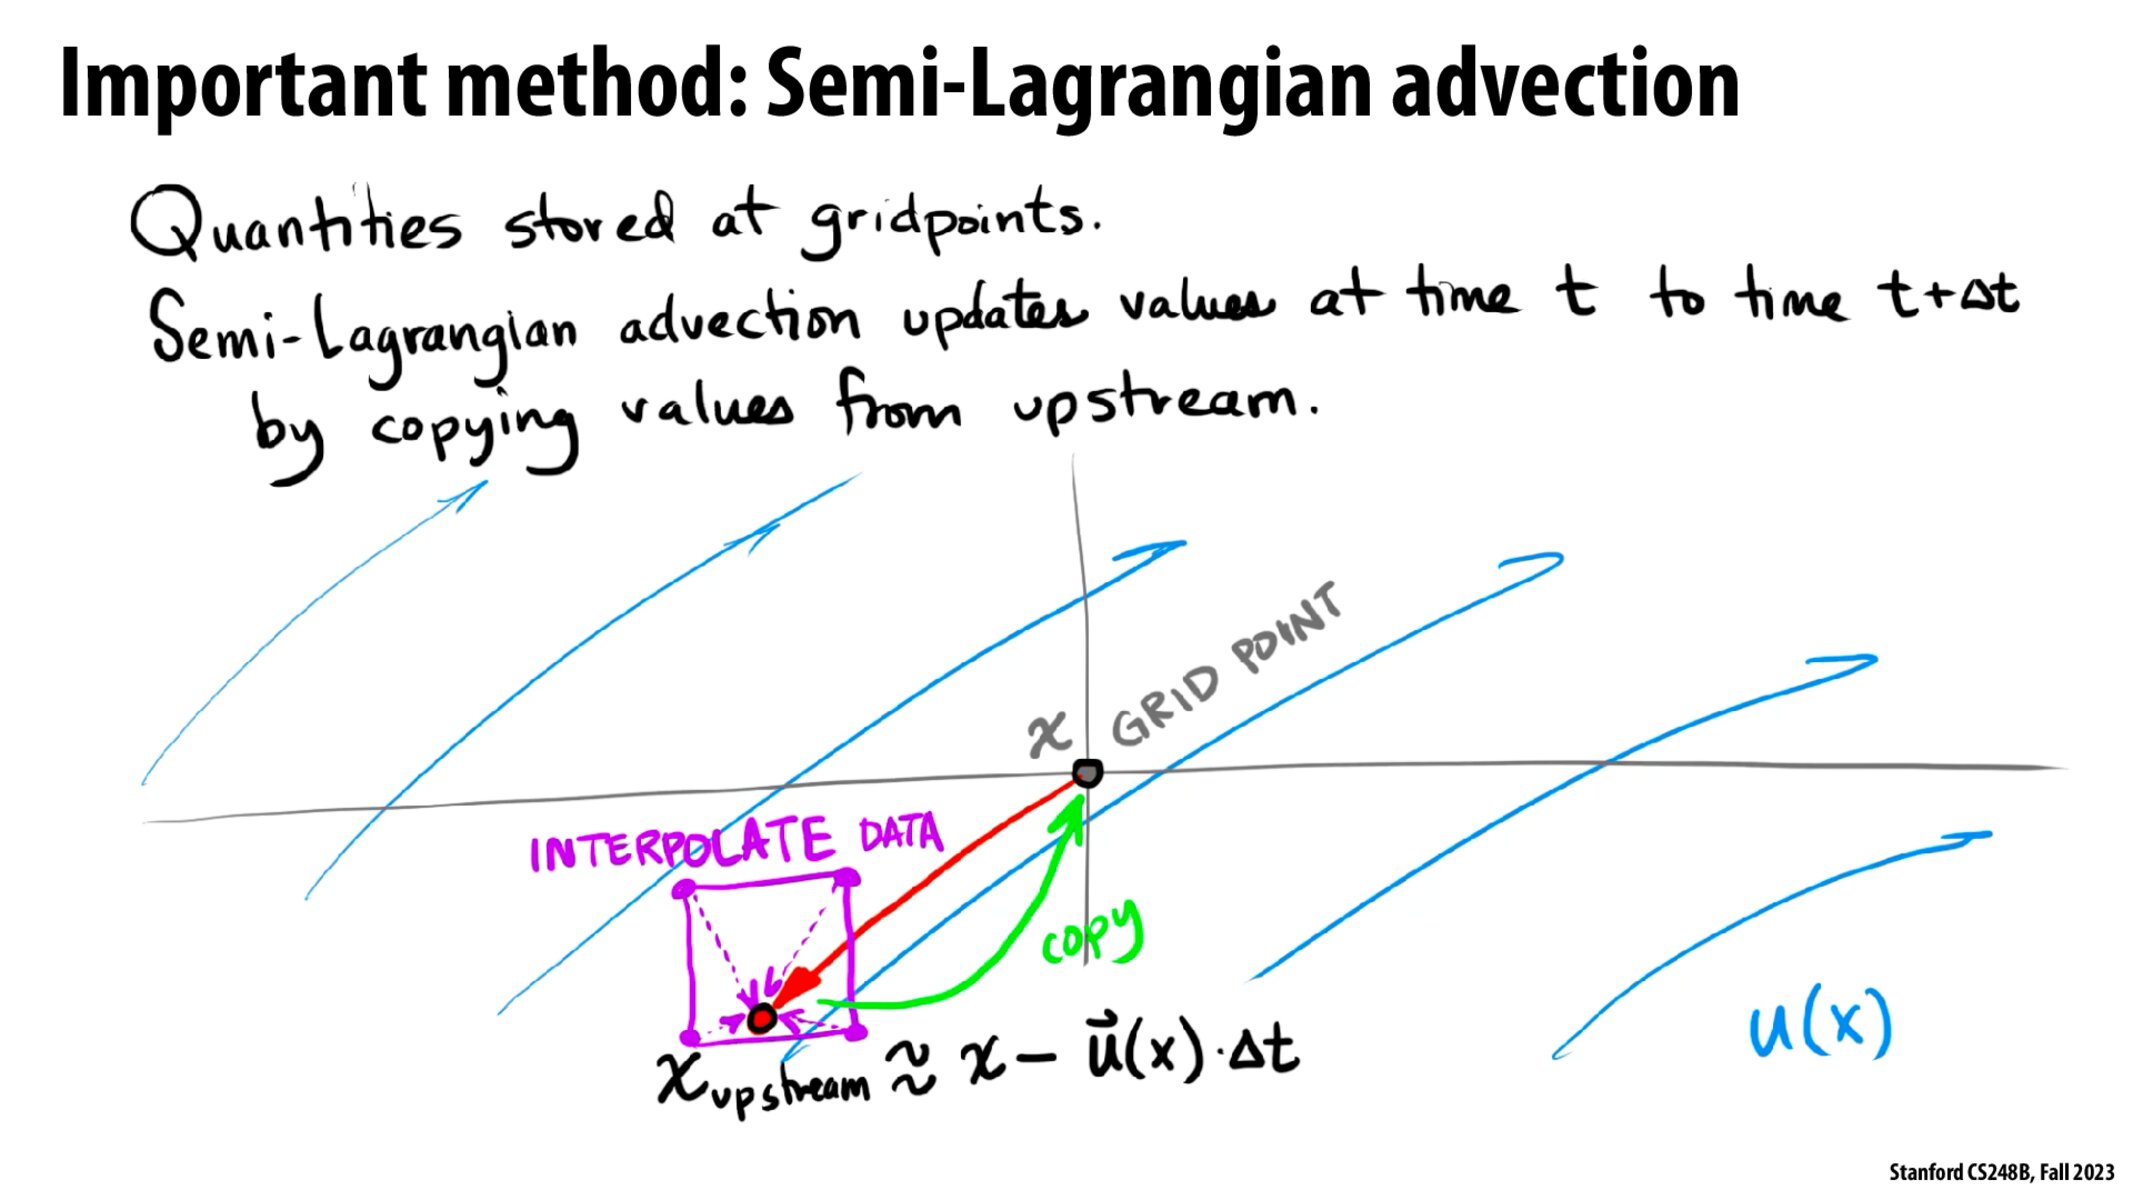 Important method: Semi-Lagrangian advection
Quantities stored at gridpoints.
Semi-Lagrangian advection updates values at time t to time t+Δt
by copying values from upstream.
x GRID POINT
INTERPOLATE DATA
copy
x upstream ≈ x - u⃗(x)·Δt
u(x)
Stanford CS248B, Fall 2023